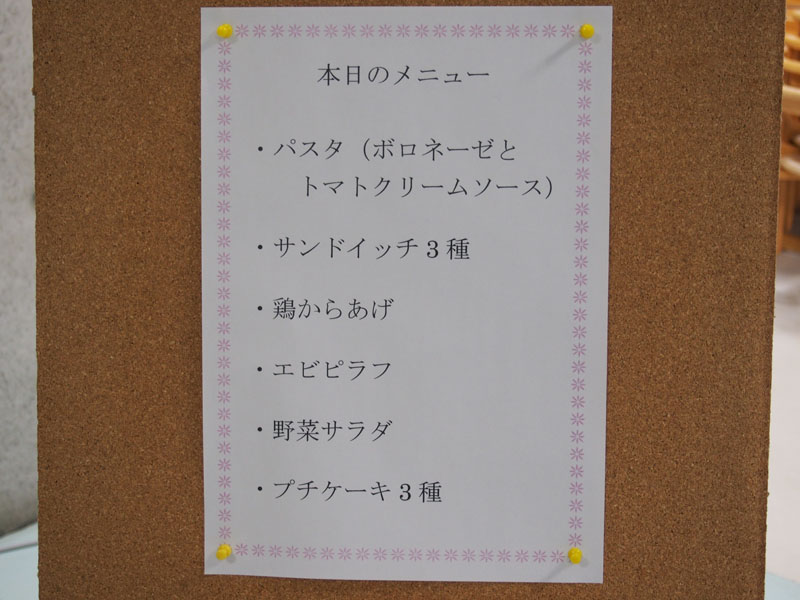 本日のメニュー
・パスタ（ボロネーゼと
トマトクリームソース）
・サンドイッチ３種
・鶏からあげ
・エビピラフ
・野菜サラダ
・プチケーキ３種